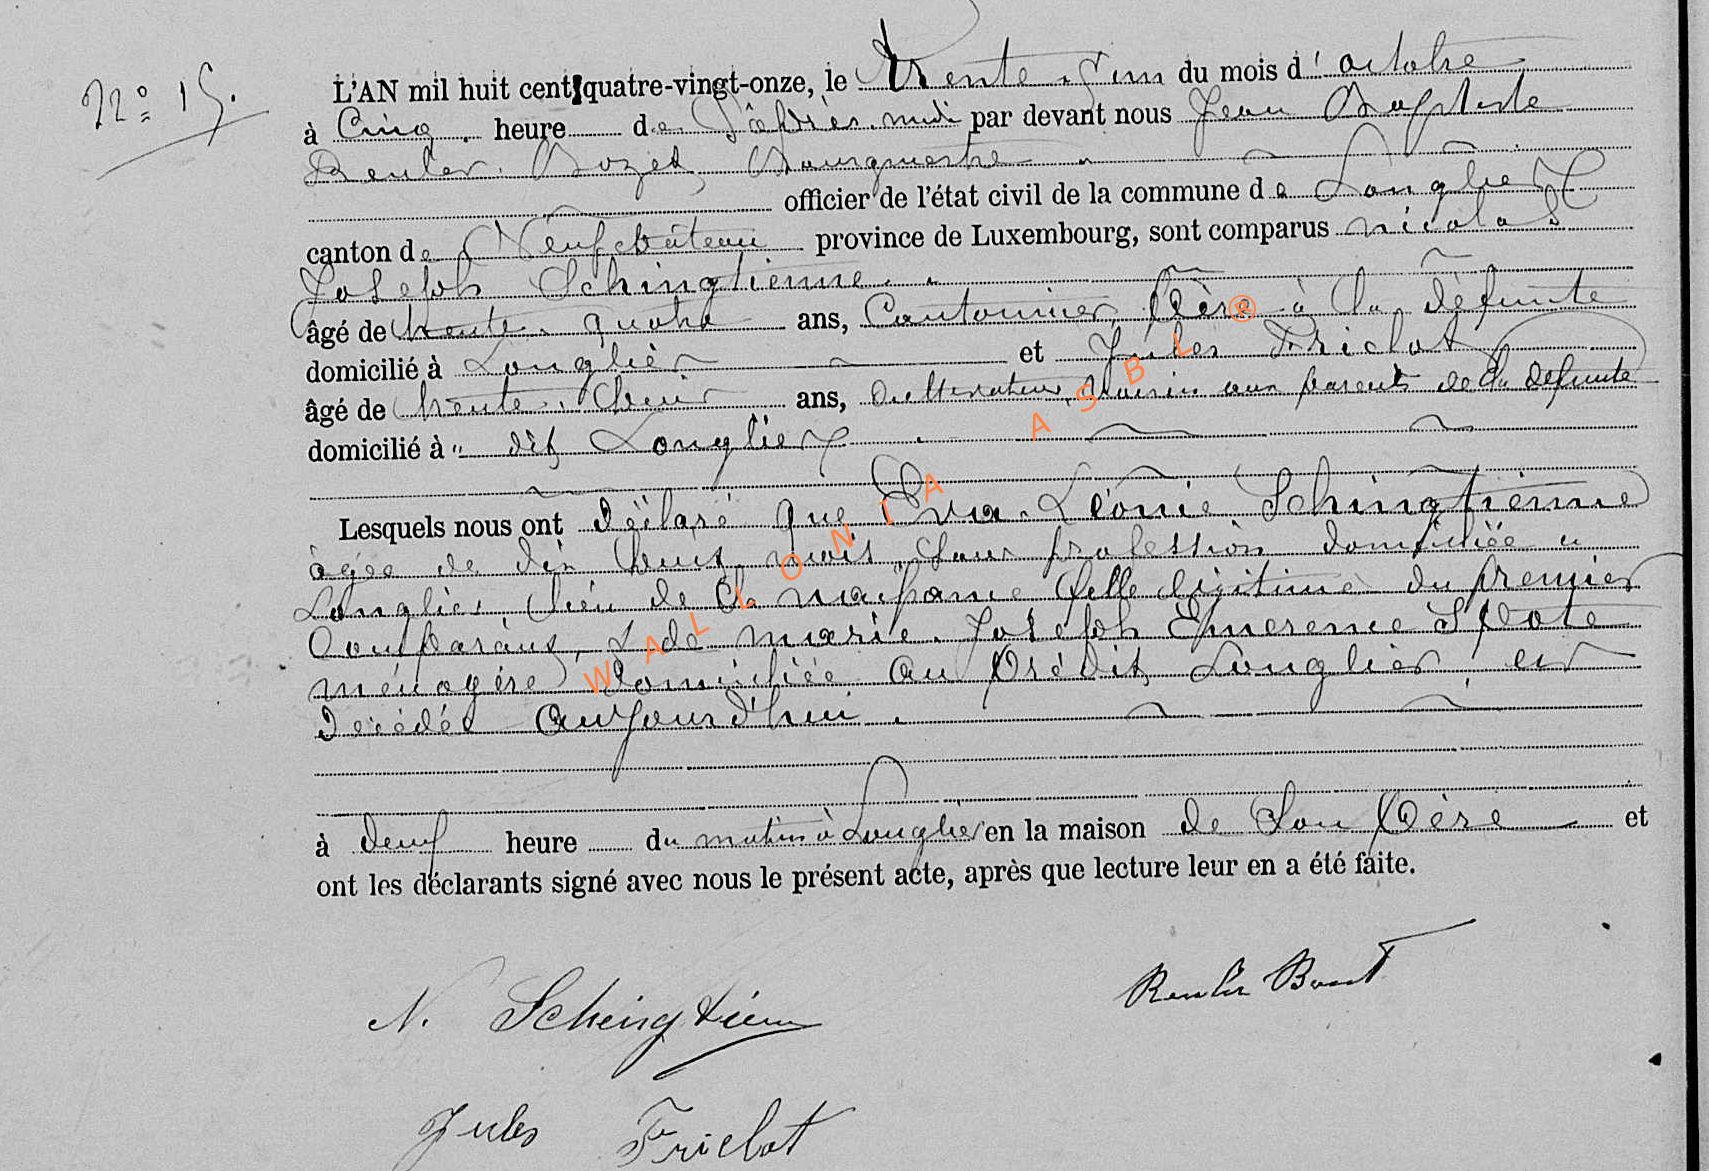 N° 15.
L'AN mil huit cent quatre-vingt-onze, le trente-un du mois d'octobre
à Cinq heure de l'après-midi par devant nous Jean Baptiste
Reuler Bourgmestre
officier de l'état civil de la commune de Longlier
canton de Neufchâteau province de Luxembourg, sont comparus nicolas
Joseph Schingtienne
âgé de trente-quatre ans, Cantonnier Père à la défunte
domicilié à Longlier et Jules Friclot
âgé de trente ans, Cultivateur, voisin aux parents de la défunte
domicilié à dit Longlier
Lesquels nous ont déclaré que Léonie Schingtienne
âgée de dix huit mois, sans profession domiciliée à
Longlier lieu de sa naissance fille légitime du premier
Comparant, & de marie-Joseph Emerence
ménagère domiciliée au prédit Longlier, est
décédée aujourd'hui
à deux heure du matin à Longlier en la maison de son Père et
ont les déclarants signé avec nous le présent acte, après que lecture leur en a été faite.
N. Schingtienne
Jules Friclot
WALLONIA ASBL ®